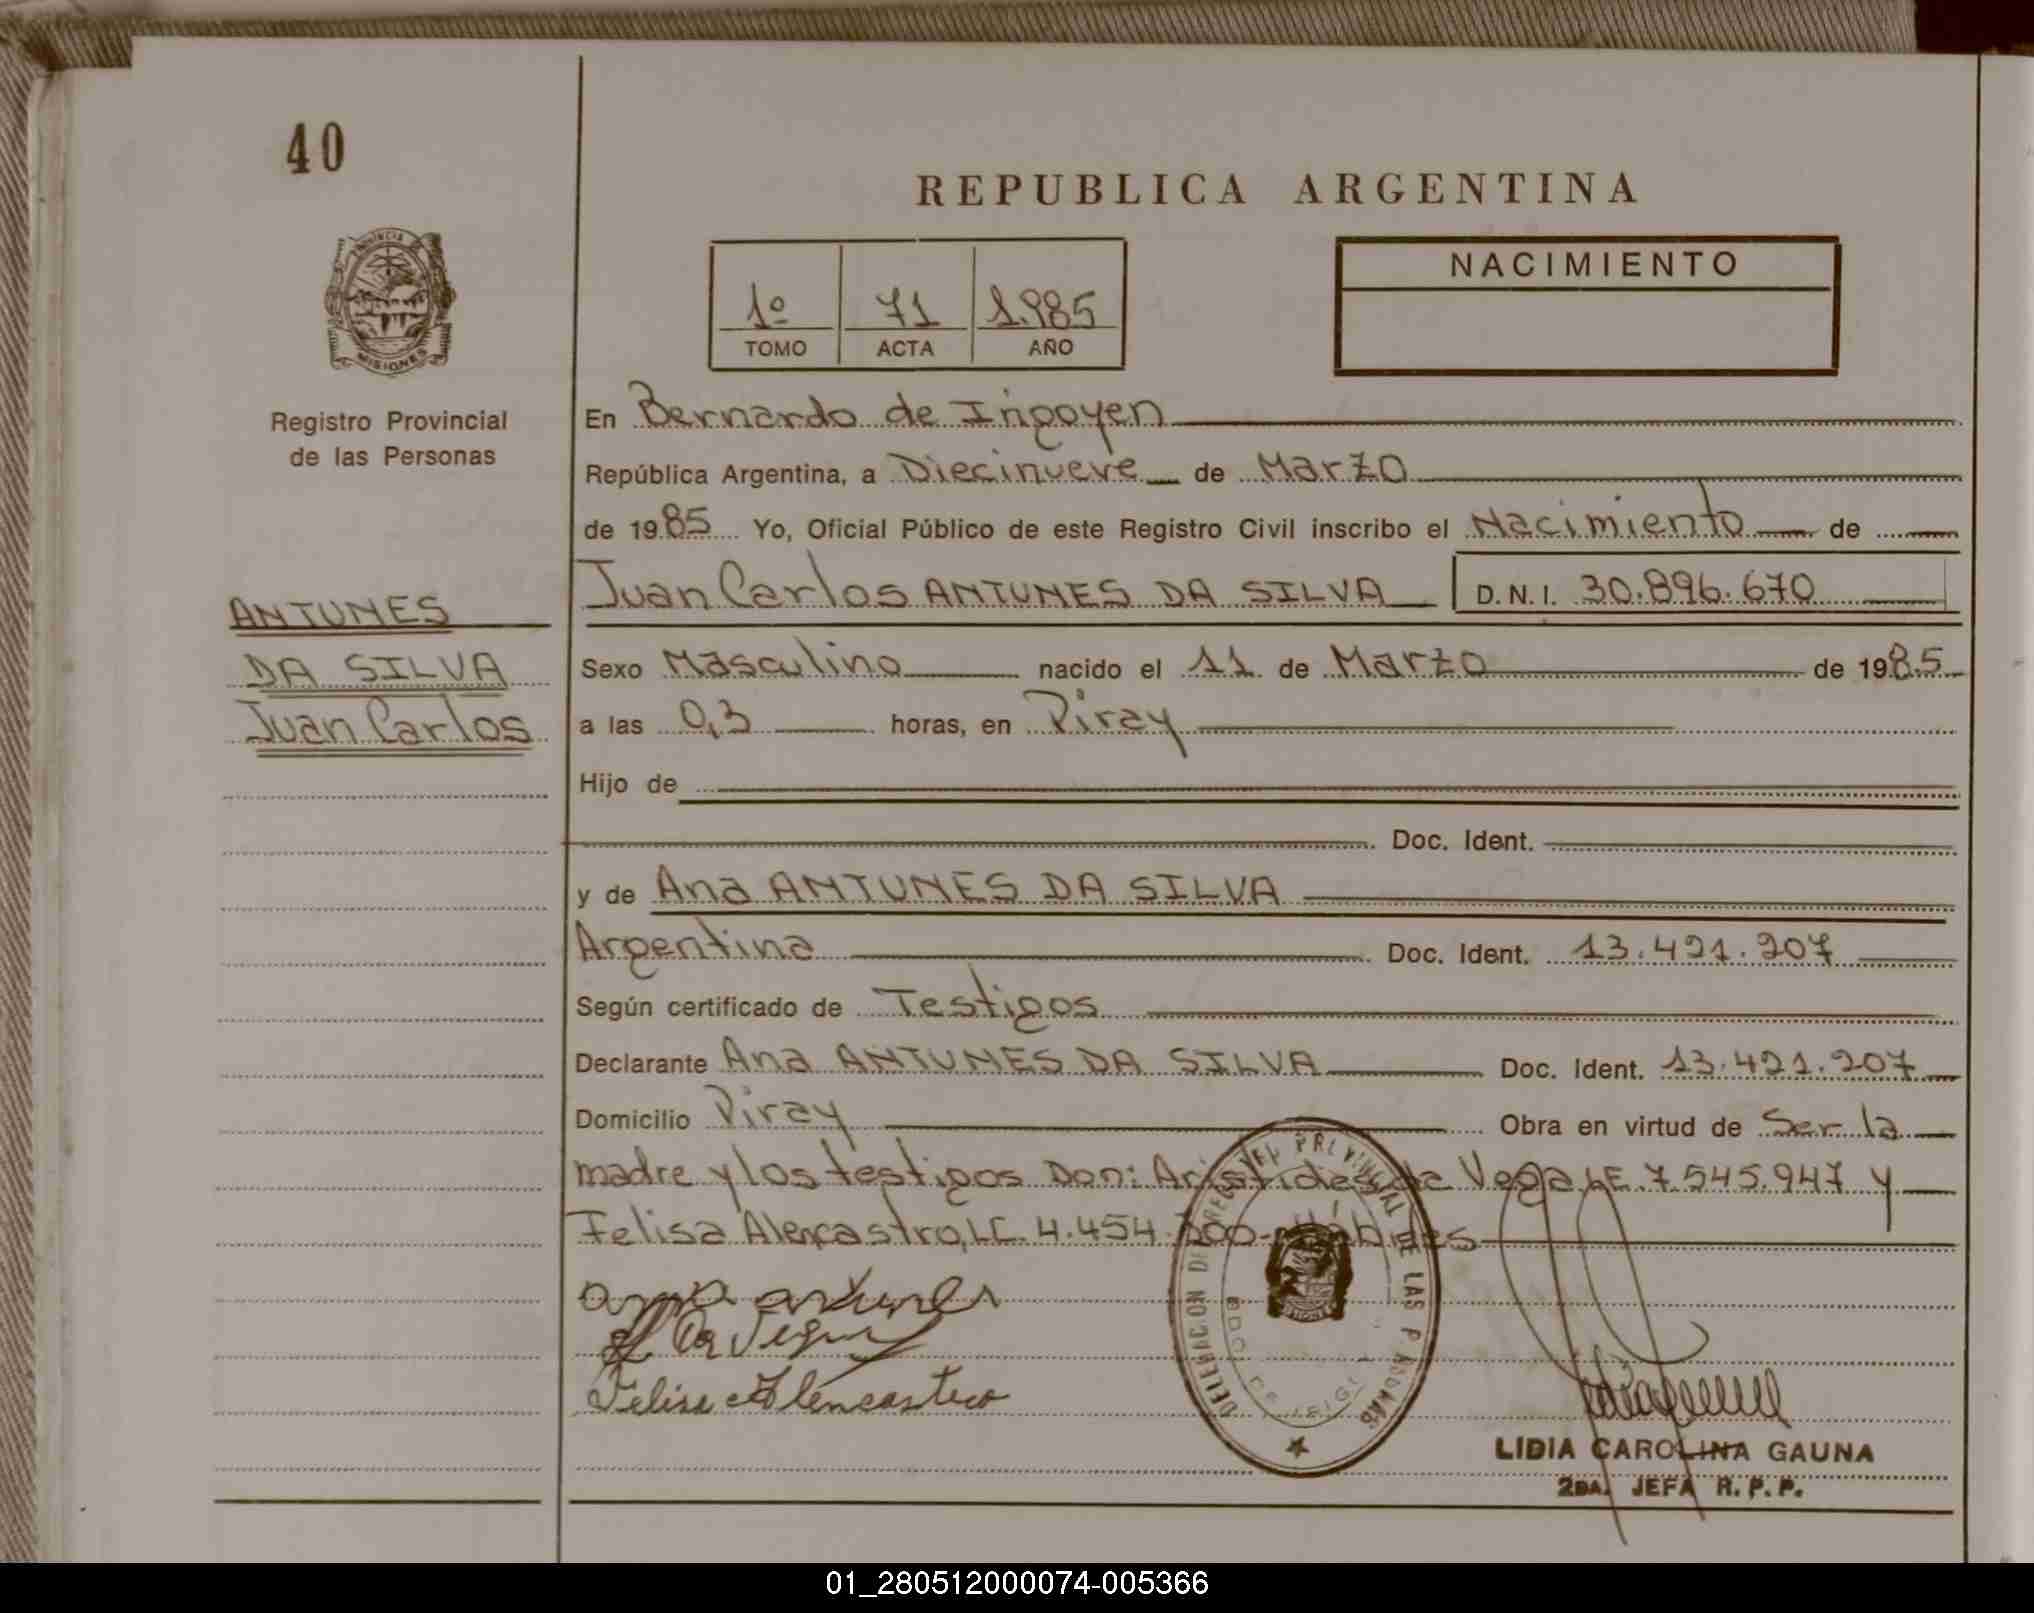 40
REPUBLICA ARGENTINA
PROVINCIA DE
MISIONES
Registro Provincial
de las Personas
1º 71 1.985
TOMO ACTA AÑO
NACIMIENTO
En Bernardo de Irigoyen
República Argentina, a Diecinueve de Marzo
de 1985 Yo, Oficial Público de este Registro Civil inscribo el Nacimiento de
Juan Carlos ANTUNES DA SILVA D.N.I. 30.896.670
ANTUNES
DA SILVA
Juan Carlos
Sexo Masculino nacido el 11 de Marzo de 1985
a las 0,3 horas, en Piray
Hijo de
Doc. Ident.
y de Ana ANTUNES DA SILVA
Argentina Doc. Ident. 13.421.207
Según certificado de Testigos
Declarante Ana ANTUNES DA SILVA Doc. Ident. 13.421.207
Domicilio Piray Obra en virtud de Ser la
madre y los testigos Don: Aristides da Vega LE. 7.545.947 y
Felisa Alencastro, LC. 4.454. Hábiles
ana antunes
Da Vega
Felisa Alencastro
DELEGACION DEL REGISTRO PROVINCIAL DE LAS PERSONAS
BDO. DE IRIGOYEN
LIDIA CAROLINA GAUNA
2DA. JEFA R. P. P.
01_280512000074-005366